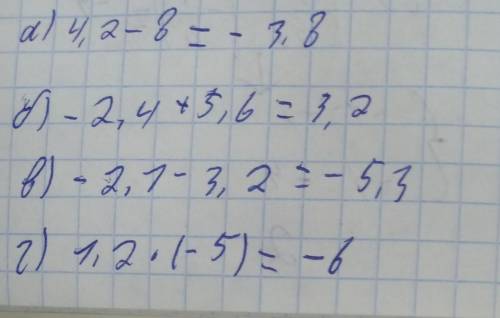 а) 4,2 - 8 = - 3,8
б) - 2,4 + 5,6 = 3,2
в) - 2,1 - 3,2 = - 5,3
г) 1,2 · (- 5) = - 6